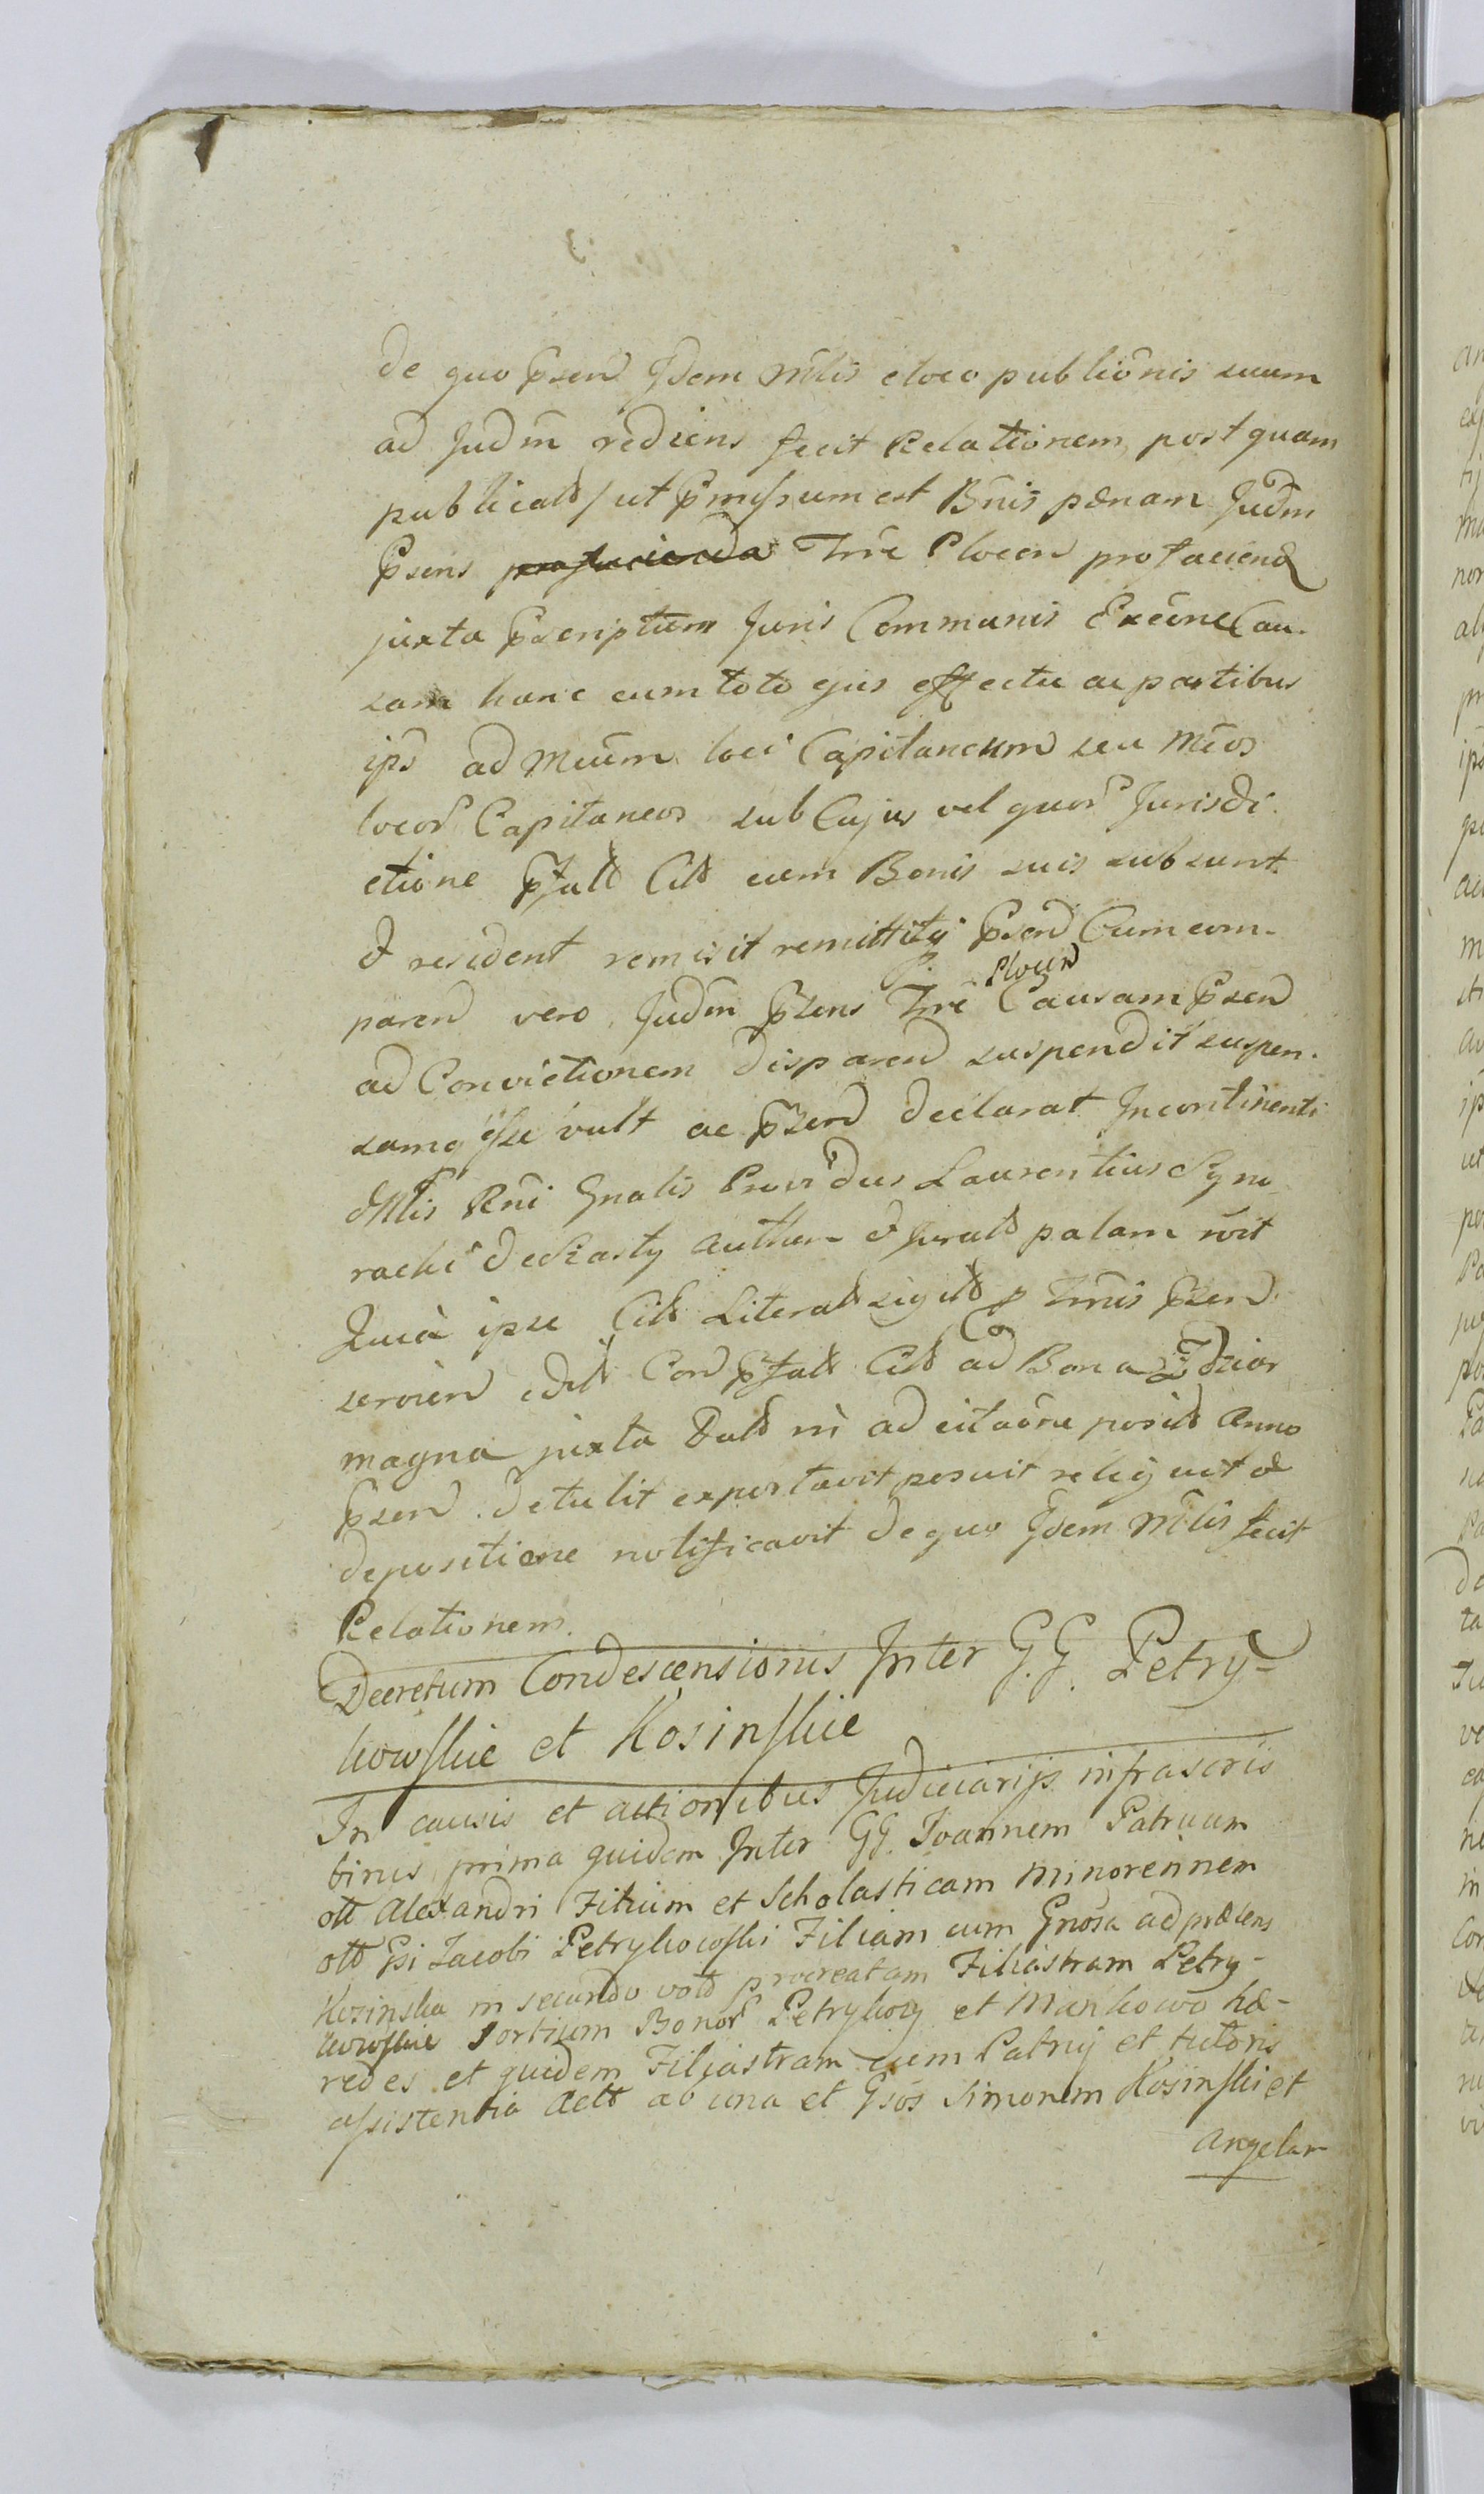 de quo Prsen Idem Mlis e loco publiônis suum
ad Judm rediens fecit Relationem, post quam
publicatt / ut Prmissum est Bnis pænam Judm
Prsens profacienda Trre Plocen profaciend
juxta Prscriptum Juris Communis Exeône Cau-
sam hanc cum toto ejus effectu ac partibus
ips ad Mcum loci Capitaneum seu Mcos
locor Capitaneos sub Cujus vel quor Jurisdi-
ctione Citt cum Bonis suis subsunt
& resident remisit remittitq Prsen Cum com-
Plocen
paren vero Judm Prsens Trre Causam Prsen
ad Convictionem disparen suspendit suspen-
samq esse vult ac Prsen declarat Incontinenti
Mlis Rni Gnalis Providus Laurentius
de auten & juratt palam rcit
Quia ipse Citt Literatt sigitt p Trmis Prsen
servien Con Citt ad Bona
magna juxta Datt in ad citaône posit Anno
Prsen detulit exportavit posuit reliquit &
depositione notificavit de quo Idem Mlis fecit
Relationem.
Decretum Condescensionis Inter G.G. Petry-
kowskie et Kosinskie
In causis et actionibus Judiciarijs infrascris
binis prima quidem Inter GG. Joannem Patruum
ott Alexandri Filium et Scholasticam minorennem
ott Gsi Jacobi Petrykowski Filiam cum Gnosa ad præsens
Kosinska in secundo voto procreatam Filiastram Petry-
kowskie Sortium Bonor Petrykozy et Mankowo hæ-
redes et quidem Filiastram cum Patruj et tutoris
assistentia Actt ab una et Gsos Simonem Kosinski et
Angelam